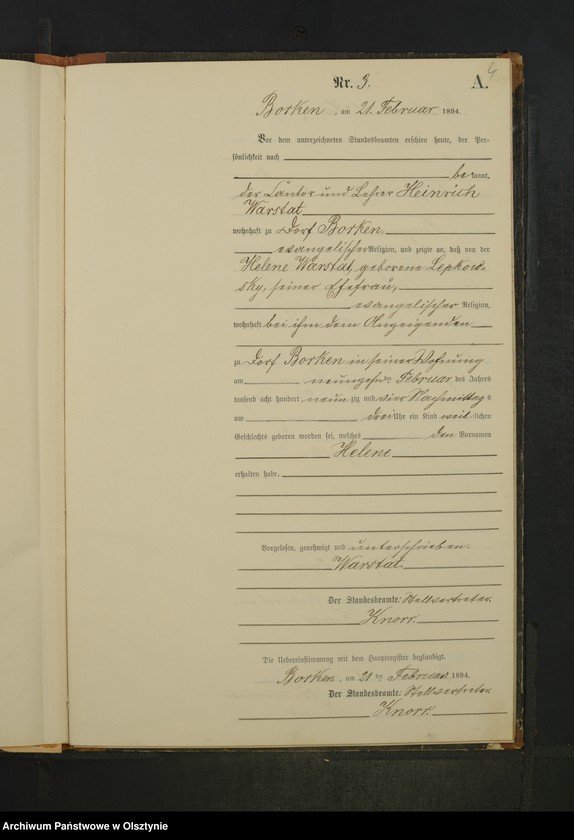 4
Nr. 3. A.
Borken, am 21. Februar 1894.
Vor dem unterzeichneten Standesbeamten erschien heute, der Per-
sönlichkeit nach
bekannt,
der Cantor und Lehrer Heinrich
Warstat
wohnhaft zu Dorf Borken,
evangelischer Religion, und zeigte an, daß von der
Helene Warstat, geborene Lepkow-
sky, seiner Ehefrau,
evangelischer Religion,
wohnhaft bei ihm dem Anzeigenden
zu Dorf Borken in seiner Wohnung
am neunzehnten Februar des Jahres
tausend acht hundert neunzig und vier Nachmittags
um drei Uhr ein Kind weiblichen
Geschlechts geboren worden sei, welches den Vornamen
Helene
erhalten habe.
Vorgelesen, genehmigt und unterschrieben.
Warstat.
Der Standesbeamte: Stellvertreter.
Knorr.
Die Uebereinstimmung mit dem Hauptregister beglaubigt.
Borken, am 21ten Februar 1894.
Der Standesbeamte: Stellvertreter
Knorr.
Archiwum Państwowe w Olsztynie